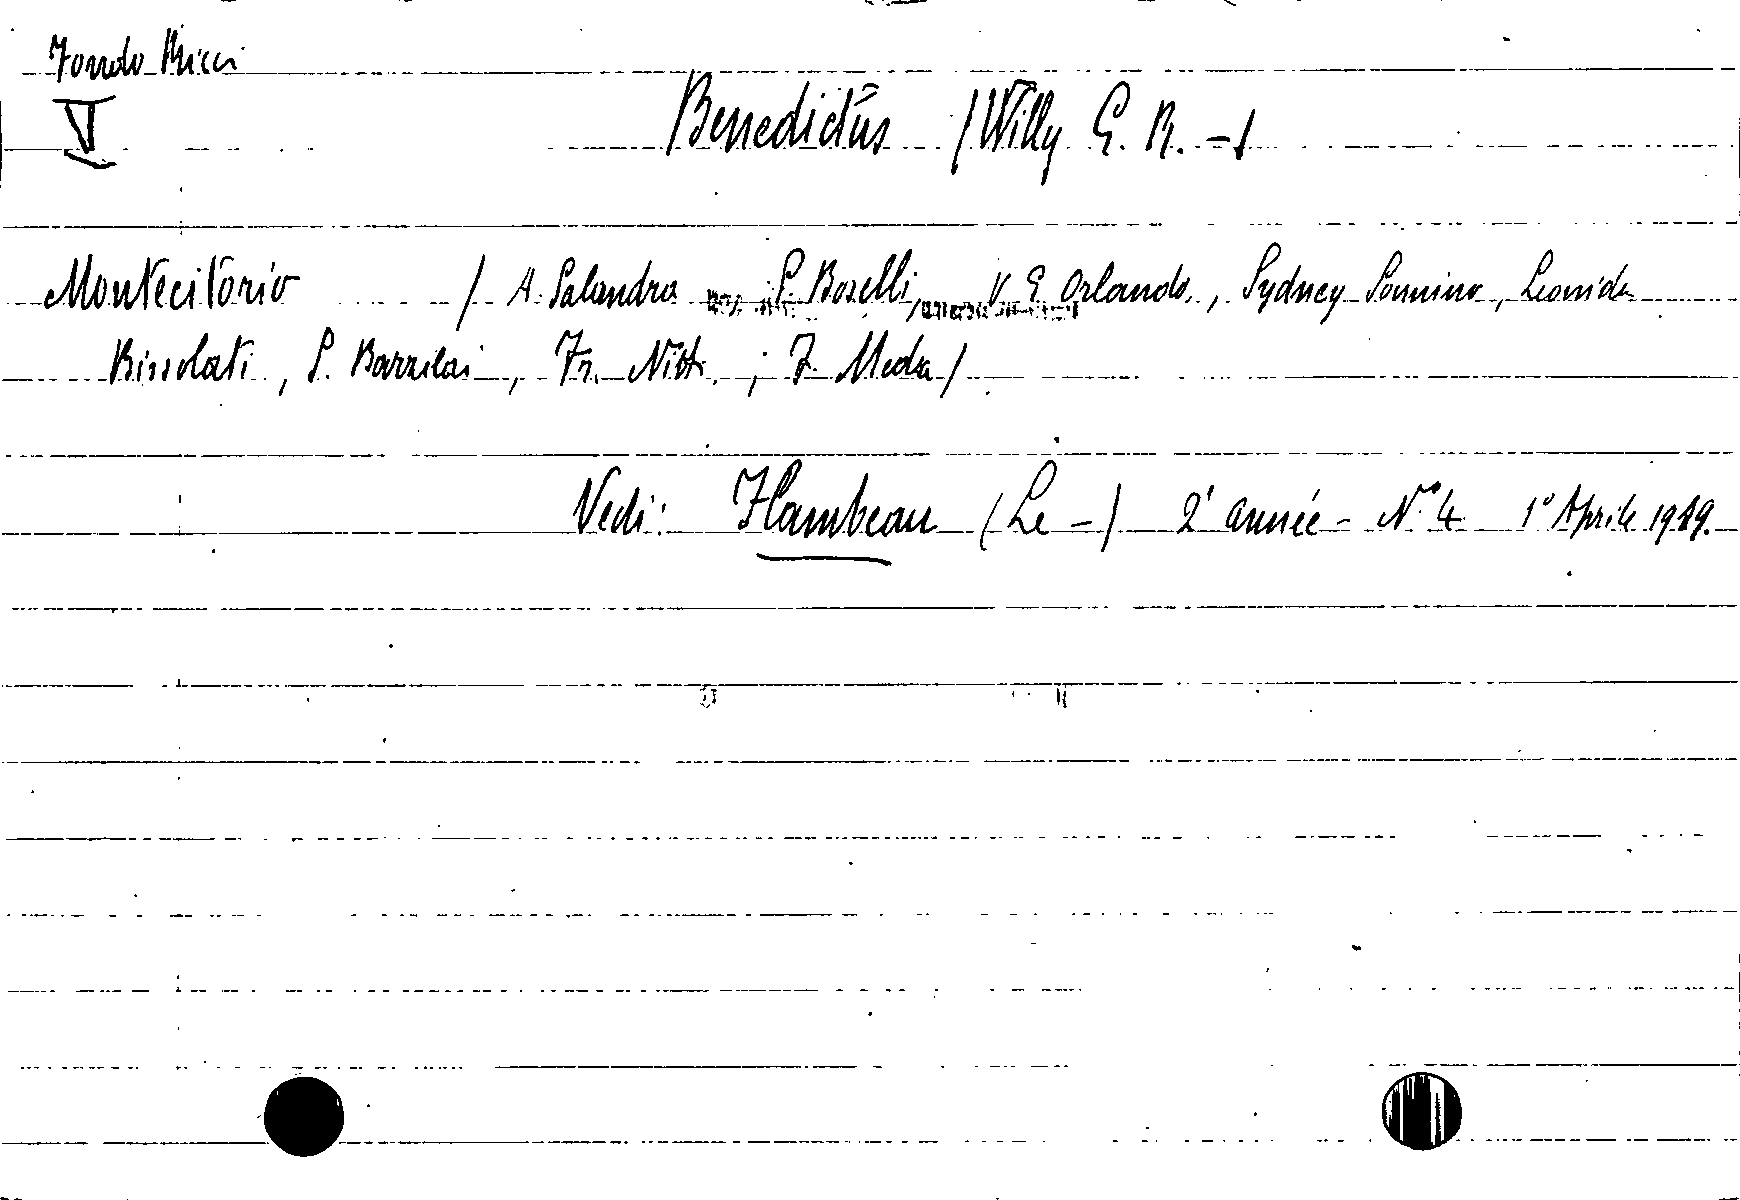 Fondo Ricci
V
Benedictus (Willy G. R. -)
Montecitorio (A. Salandra, P. Boselli, V. E. Orlando, Sydney Sonnino, Leonida
Bissolati, S. Barzilai, Fr. Nitti, ; F. Meda)
Vedi: Flambeau (Le -) 2' année - N° 4 1° Aprile 1919.